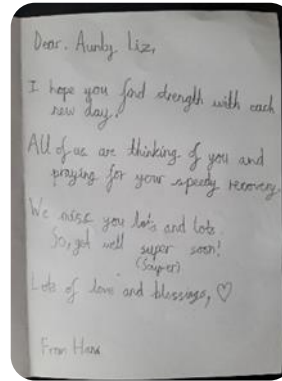 Dear. Aunty Liz,
I hope you find strength with each
new day.
All of us are thinking of you and
praying for your speedy recovery.
We miss you lots and lots.
So, get well super soon!
(Super)
Lots of love and blessings, ♡
From Hana